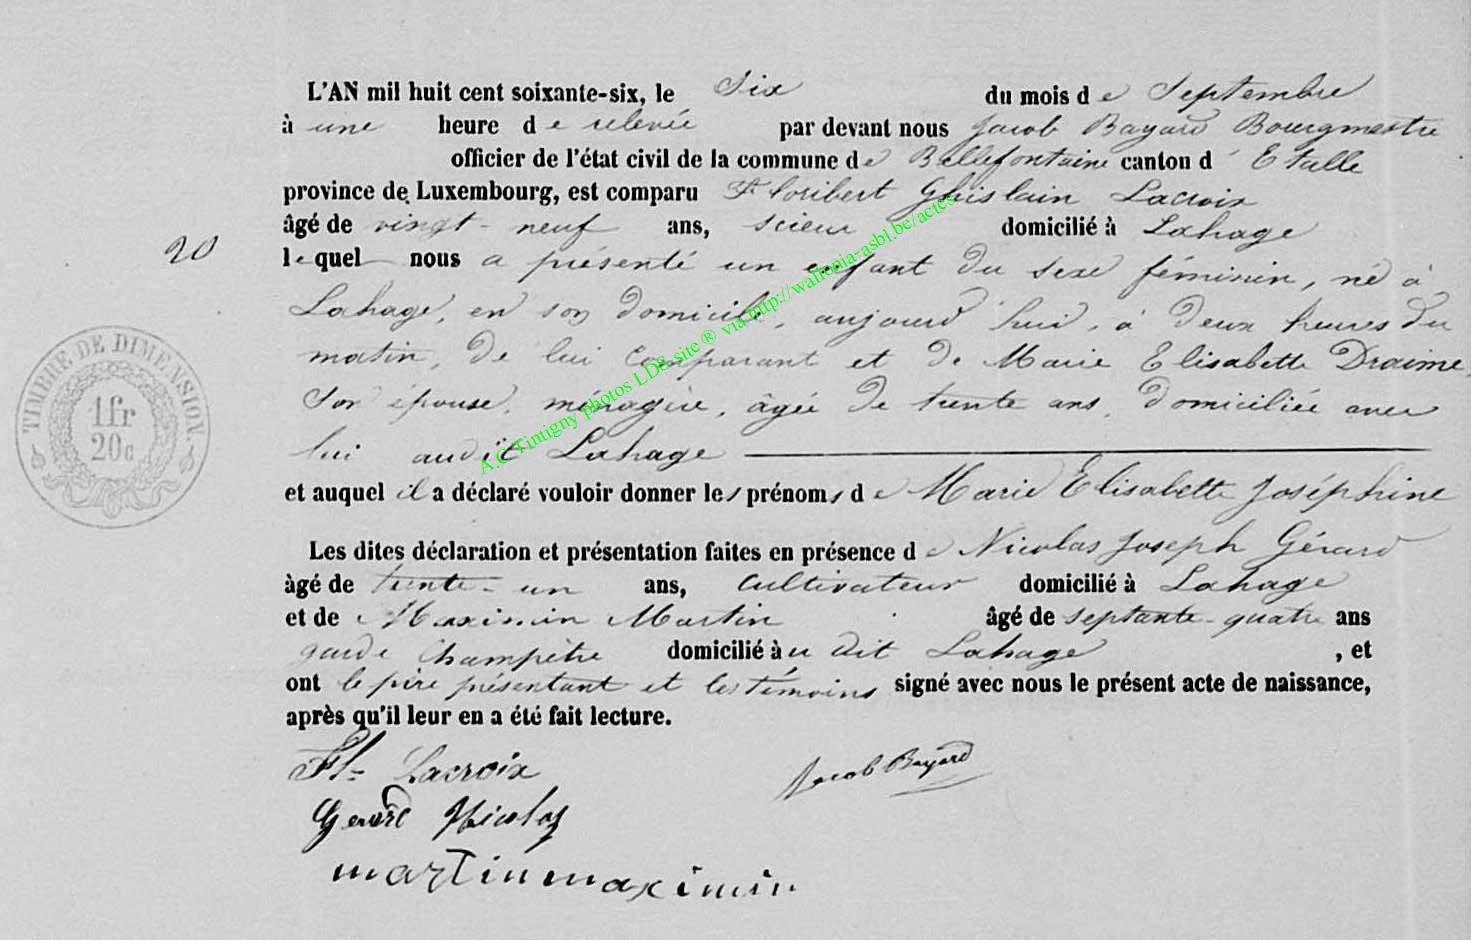 L'AN mil huit cent soixante-six, le Six du mois de Septembre
à une heure de relevée par devant nous Jacob Bayard Bourgmestre
officier de l'état civil de la commune de Bellefontaine canton d'Etalle
province de Luxembourg, est comparu Floribert Ghislain Lacroix
âgé de vingt-neuf ans, scieur domicilié à Lahage
20
lequel nous a présenté un enfant du sexe féminin, né à
Lahage, en son domicile, aujourd'hui, à deux heures du
matin, de lui comparant et de Marie Elisabette Draime,
son épouse, ménagère, âgée de trente ans, domiciliée avec
lui audit Lahage
et auquel il a déclaré vouloir donner les prénoms de Marie Elisabette Joséphine
Les dites déclaration et présentation faites en présence de Nicolas Joseph Gérard
âgé de trente-un ans, cultivateur domicilié à Lahage
et de Maximin Martin âgé de septante-quatre ans
garde champêtre domicilié au dit Lahage, et
ont le père présentant et les témoins signé avec nous le présent acte de naissance,
après qu'il leur en a été fait lecture.
Fl- Lacroix
Jacob Bayard
Gerard Nicolas
martin maximin
TIMBRE DE DIMENSION.
1fr
20c
A.C. Tintigny photos LDS site ® via http://wallonia-asbl.be/actes